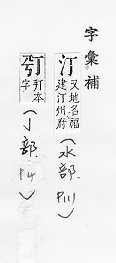 字彙補
汀 又地名福建汀州府
(水部 P111)
打本字
(亅部 P4)